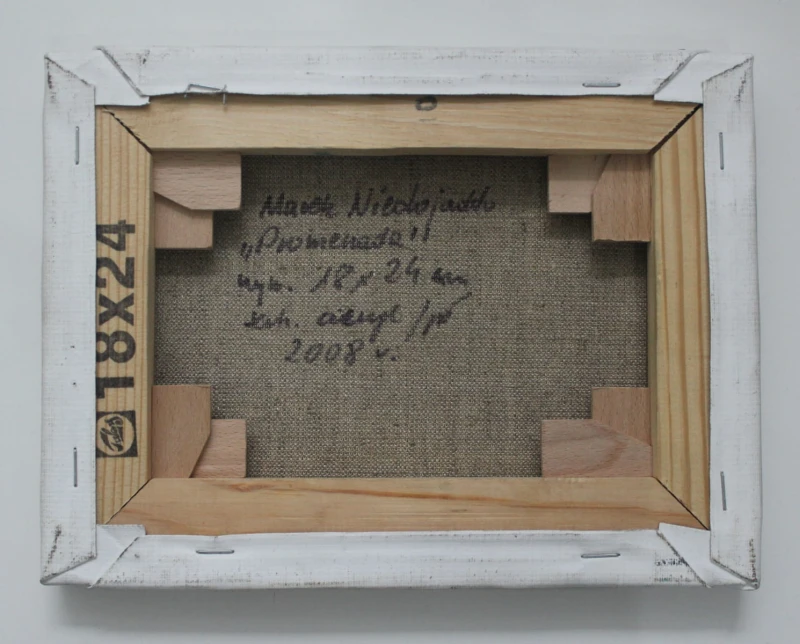 Marek Niedojadło
„Promenada"
wym. 18 x 24 cm
tech. akryl / pł
2008 r.
18x24